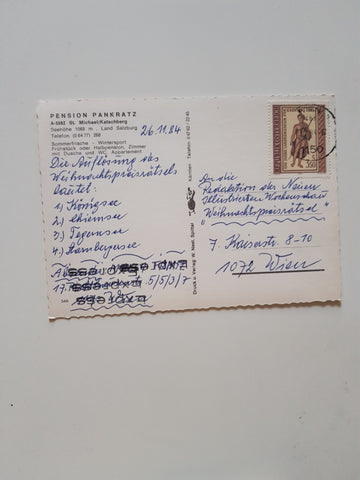 PENSION PANKRATZ
A-5582 St. Michael/Katschberg
Seehöhe 1068 m . Land Salzburg
Telefon (0 64 77) 258
Sommerfrische - Wintersport
Frühstück oder Halbpension, Zimmer
mit Dusche und WC, Appartement
26.11.84
Die Auflösung des
Weihnachtspreisrätsels
lautet:
1.) Königsee
2.) Chiemsee
3.) Tegernsee
4.) Starnbergersee
17.
5/5/3/7
Druck u. Verlag W. Neel, Spittal
Kärnten
REPUBLIK ÖSTERREICH
1150
An die
Redaktion der Neuen
Illustrierten Wochenschau
"Weihnachtspreisrätsel"
7. Kaiserstr. 8-10
1072 Wien